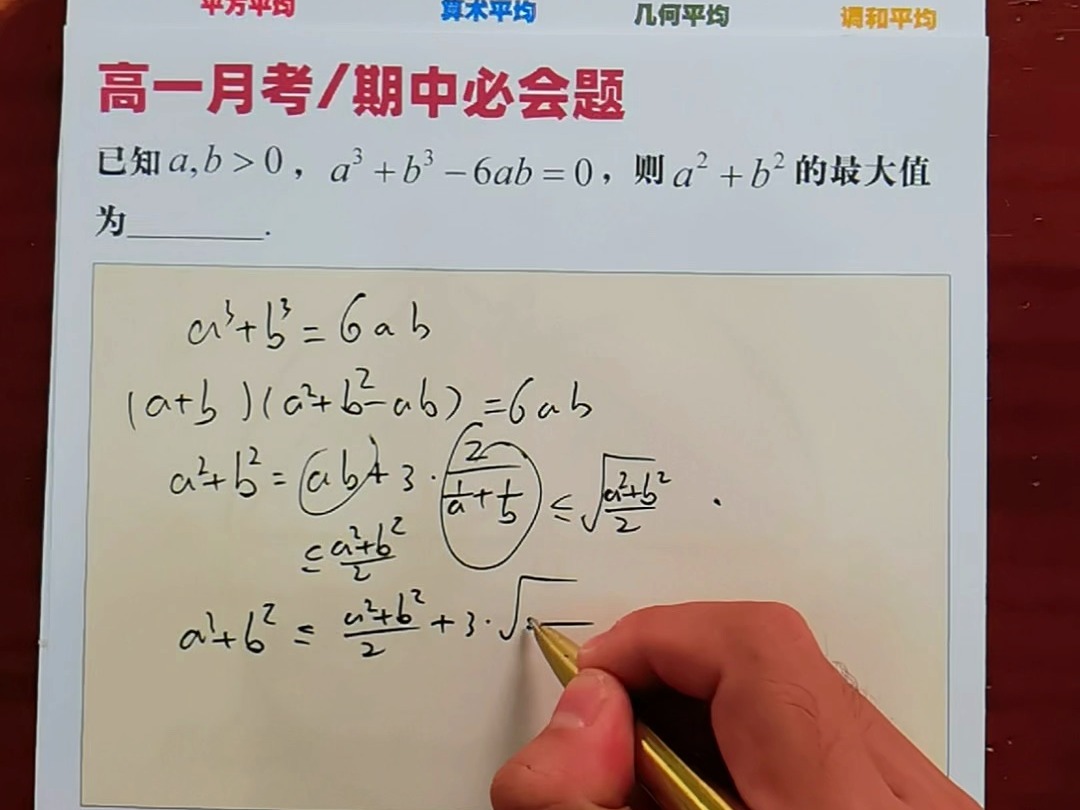 平方平均 算术平均 几何平均 调和平均
高一月考/期中必会题
已知 a,b > 0，a³ + b³ − 6ab = 0，则 a² + b² 的最大值
为________.
a³+b³=6ab
(a+b)(a²+b²-ab)=6ab
a²+b²=ab+3·2/(1/a+1/b) ≤ √((a²+b²)/2) .
≤ (a²+b²)/2
a²+b² ≤ (a²+b²)/2 + 3·√